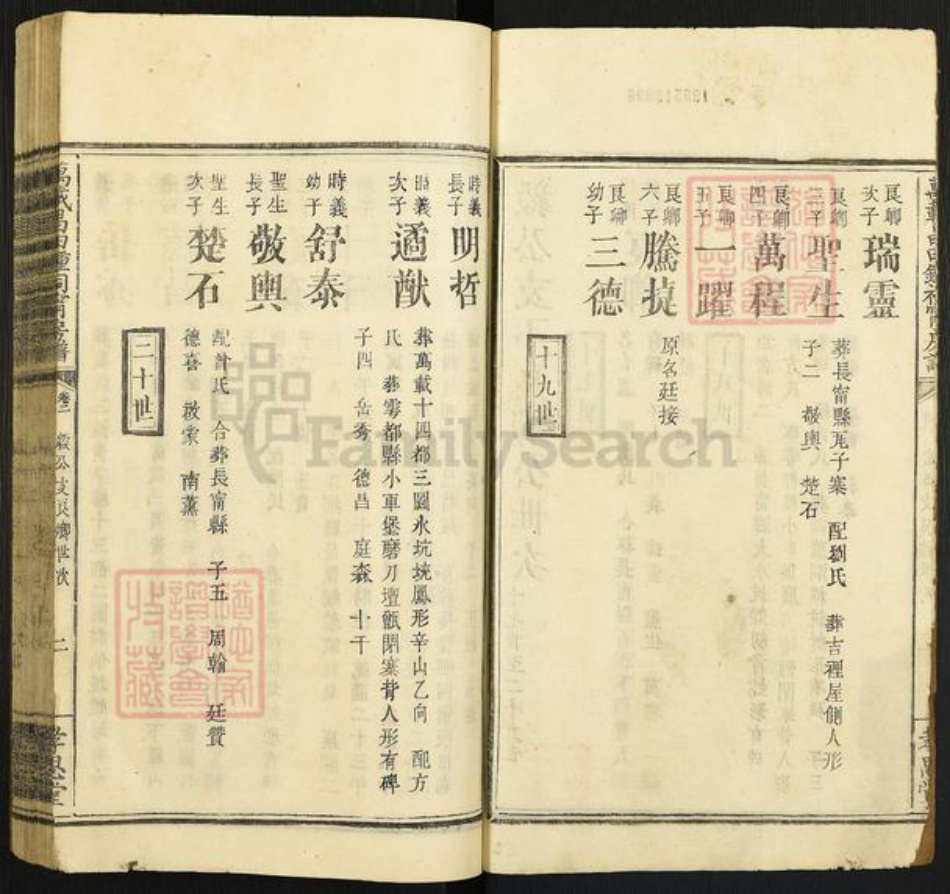 良卿次子 瑞靈
良卿三子 聖生 葬長甯縣瓦子寨 配劉氏 葬吉裡屋側人形
子二 敬輿 楚石
良卿四子 萬程
良卿五子 一躍
良卿六子 騰㨗 原名廷接
良卿幼子 三德
十九世
時義長子 明哲
時義次子 遁猷 葬萬載十四都三圖水坑塊鳳形辛山乙向 配方
氏 葬雩都縣小車堡磨刀壇甑閉寨背人形有碑
子四 岳秀 德昌 庭森 十千
時義幼子 舒泰
聖生長子 敬輿
聖生次子 楚石 配曾氏 合葬長甯縣 子五 周翰 廷贊
德喜 啟棠 南薰
二十世
卷二
毅公支良卿世次
二
孝思堂
FamilySearch